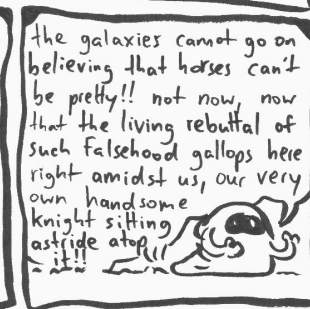 the galaxies cannot go on
believing that horses can't
be pretty!! not now, now
that the living rebuttal of
such falsehood gallops here
right amidst us, our very
own handsome
knight sitting
astride atop
it!!